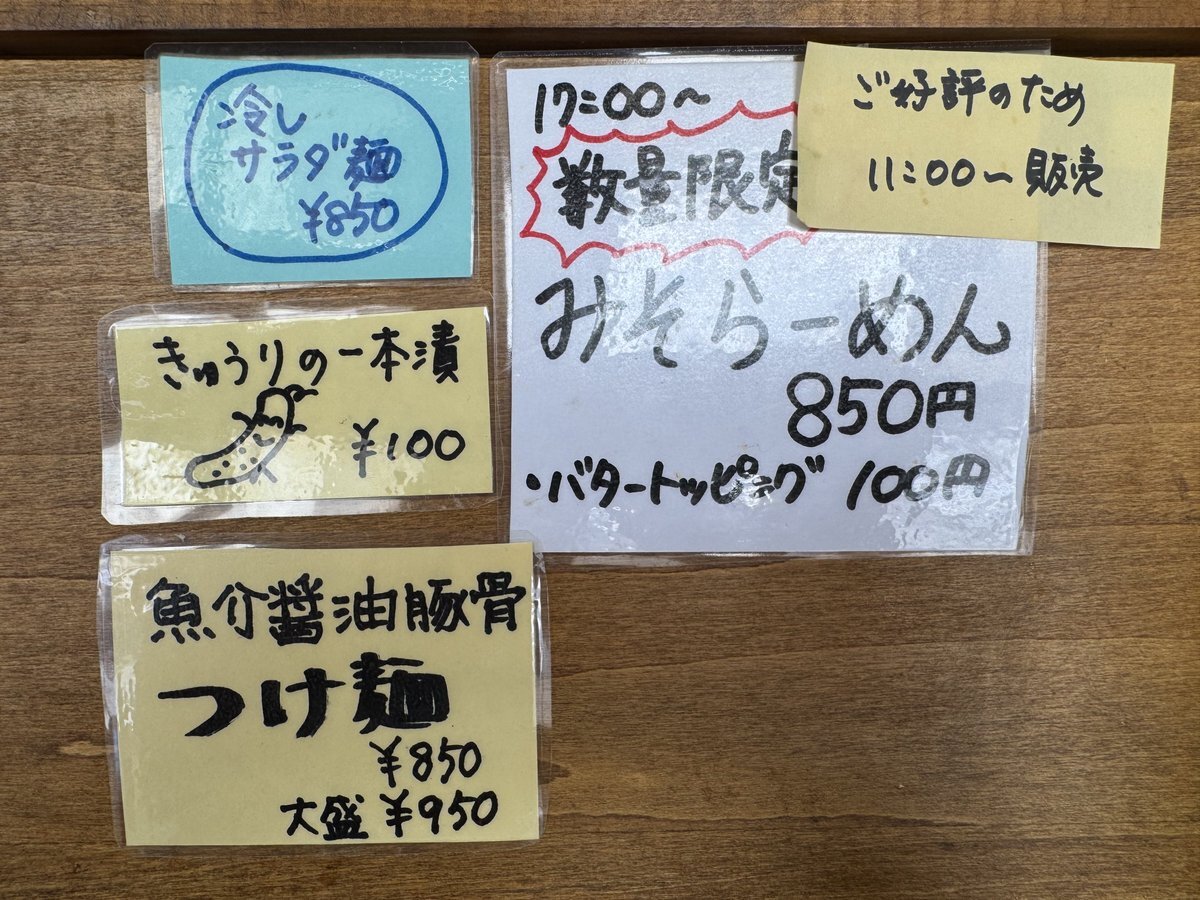 冷し
サラダ麺
¥850
きゅうりの一本漬
¥100
魚介醤油豚骨
つけ麺
¥850
大盛 ¥950
17:00～
数量限定
みそらーめん
850円
・バタートッピング 100円
ご好評のため
11:00～販売